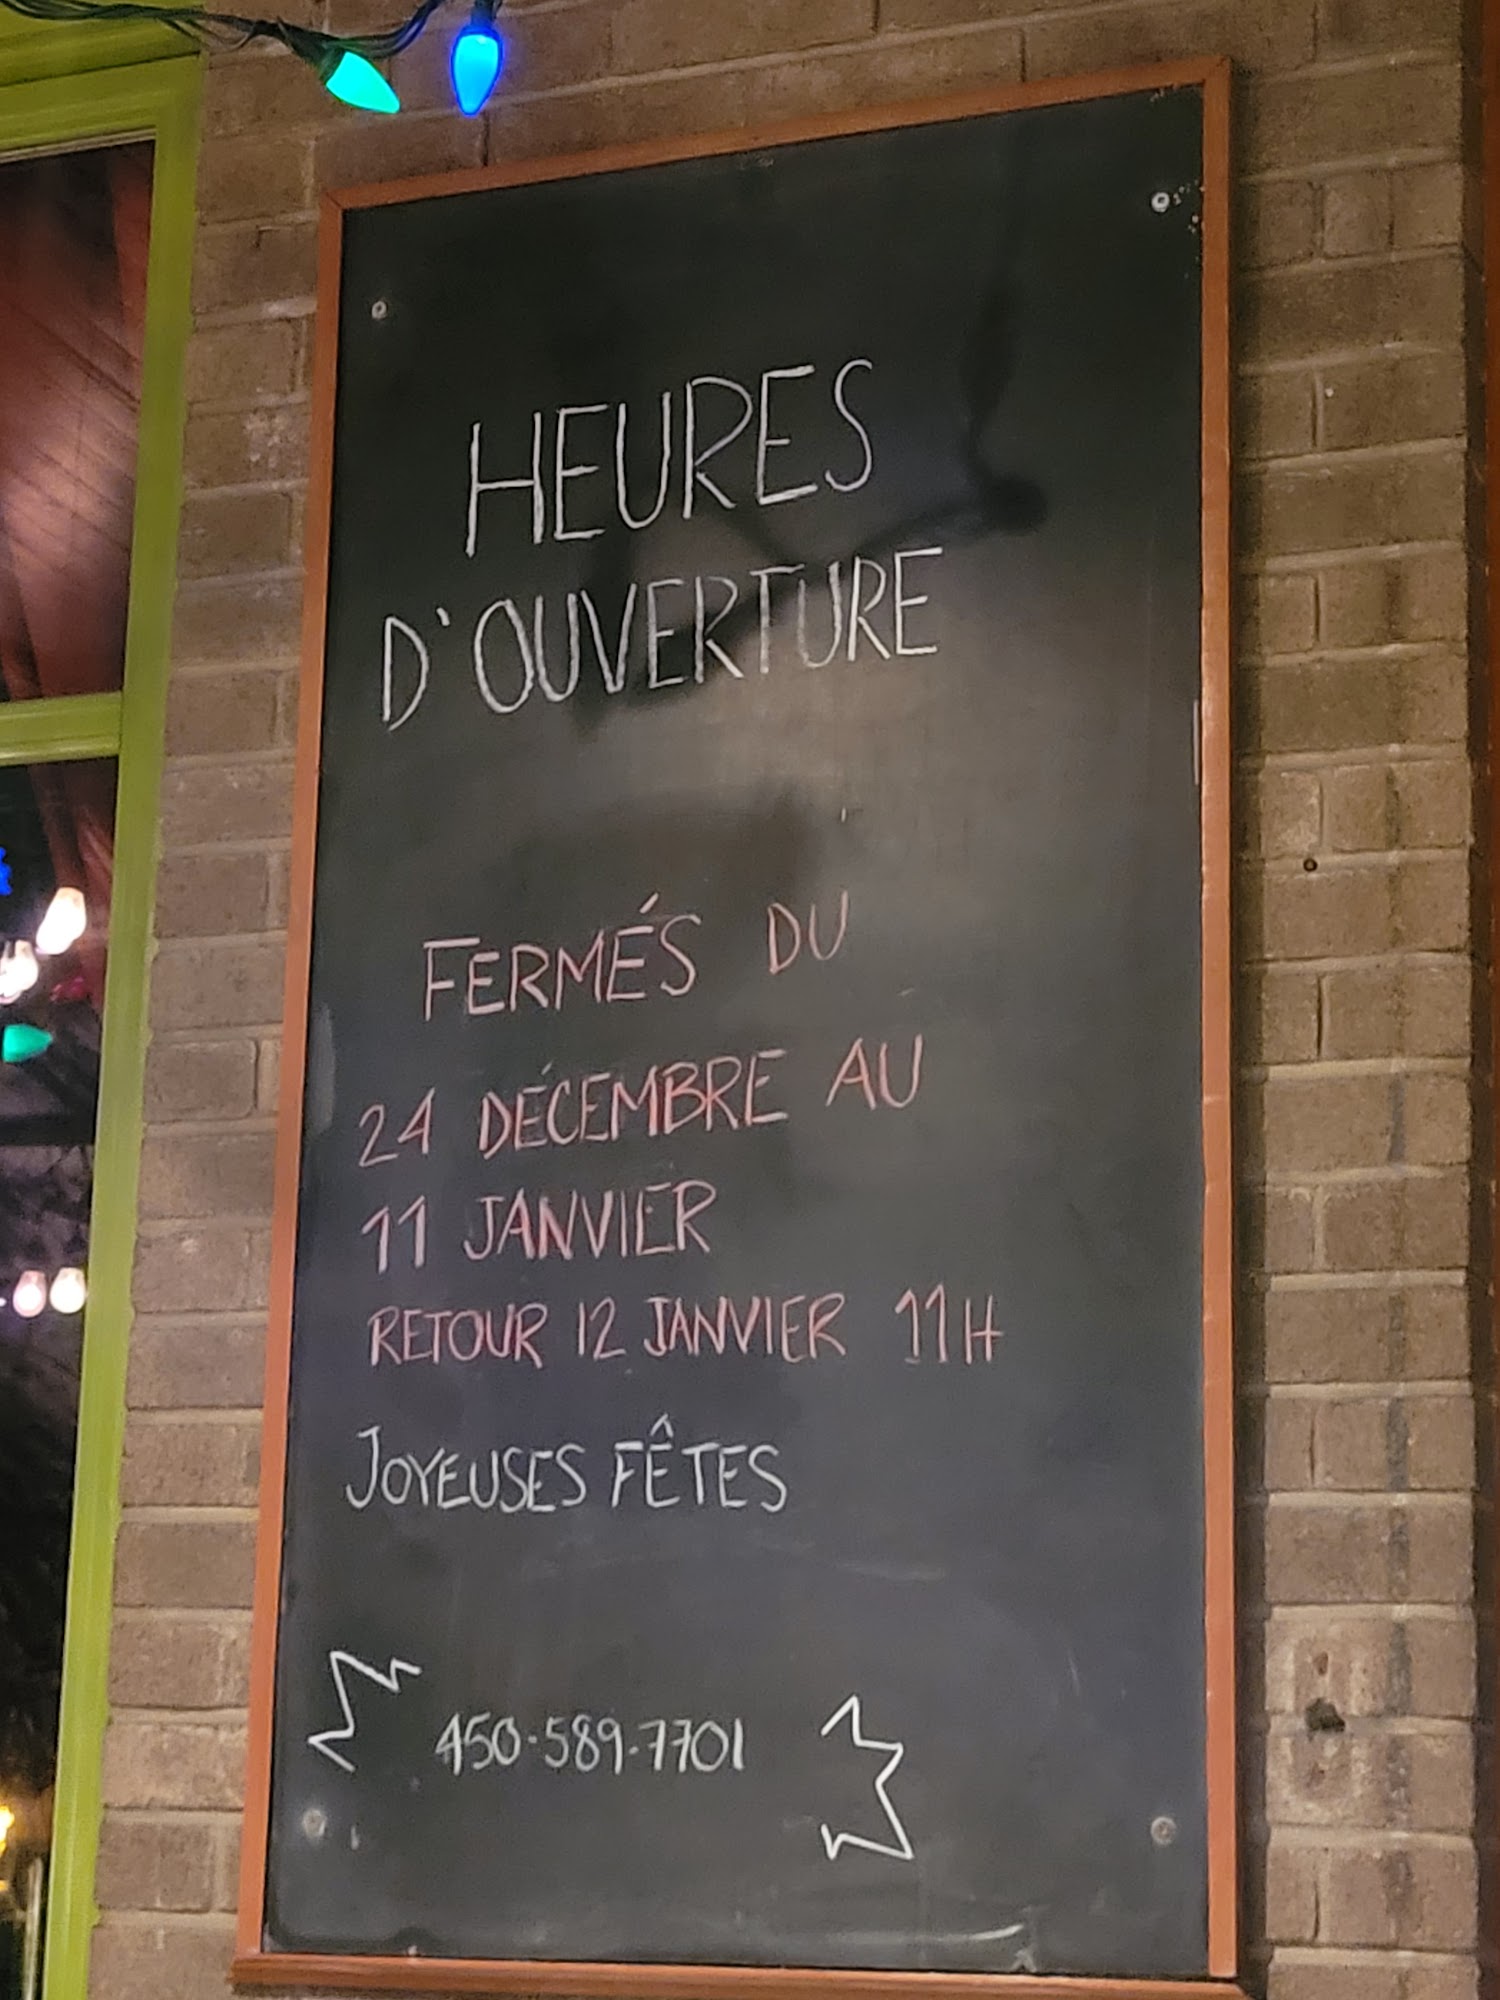 HEURES
D'OUVERTURE
FERMÉS DU
24 DÉCEMBRE AU
11 JANVIER
RETOUR 12 JANVIER 11H
JOYEUSES FÊTES
450-589-7701